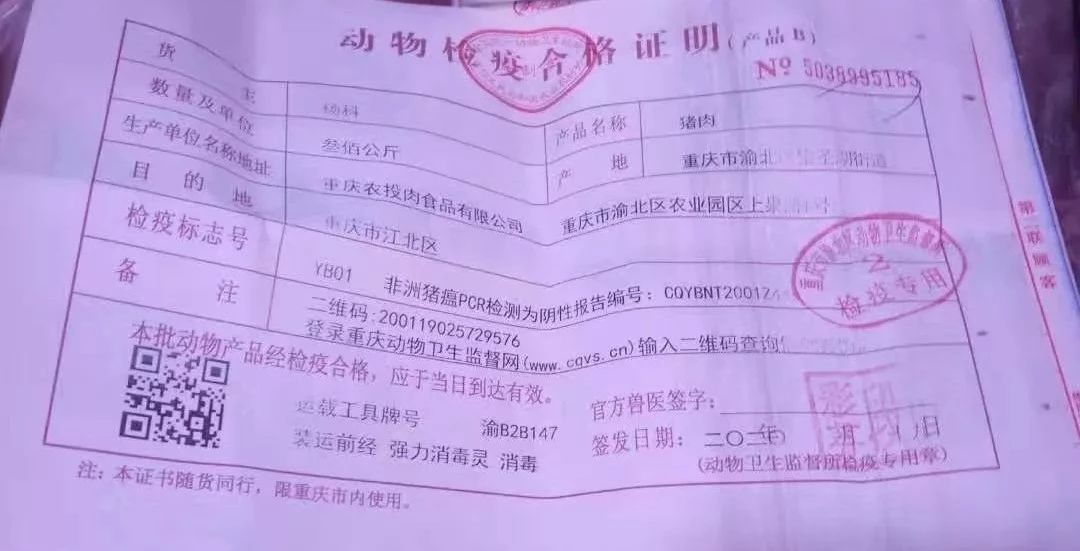 动物检疫合格证明(产品B)
No 5036995185
货主 杨科 产品名称 猪肉
数量及单位 叁佰公斤 产地 重庆市渝北
生产单位名称地址 重庆农投肉食品有限公司 重庆市渝北区农业园区上果
目的地 重庆市江北区
检疫标志号 YB01 非洲猪瘟PCR检测为阴性报告编号：CQYBNT2001
备注 二维码:200119025729576
登录重庆动物卫生监督网(www.cqvs.cn)输入二维码查询
动物卫生监督
2
检疫专用
本批动物产品经检疫合格，应于当日到达有效。
运载工具牌号 渝B2B147
装运前经 强力消毒灵 消毒
官方兽医签字：
签发日期： 二〇二 年 月 日
(动物卫生监督所检疫专用章)
注：本证书随货同行，限重庆市内使用。
第二联 顾客